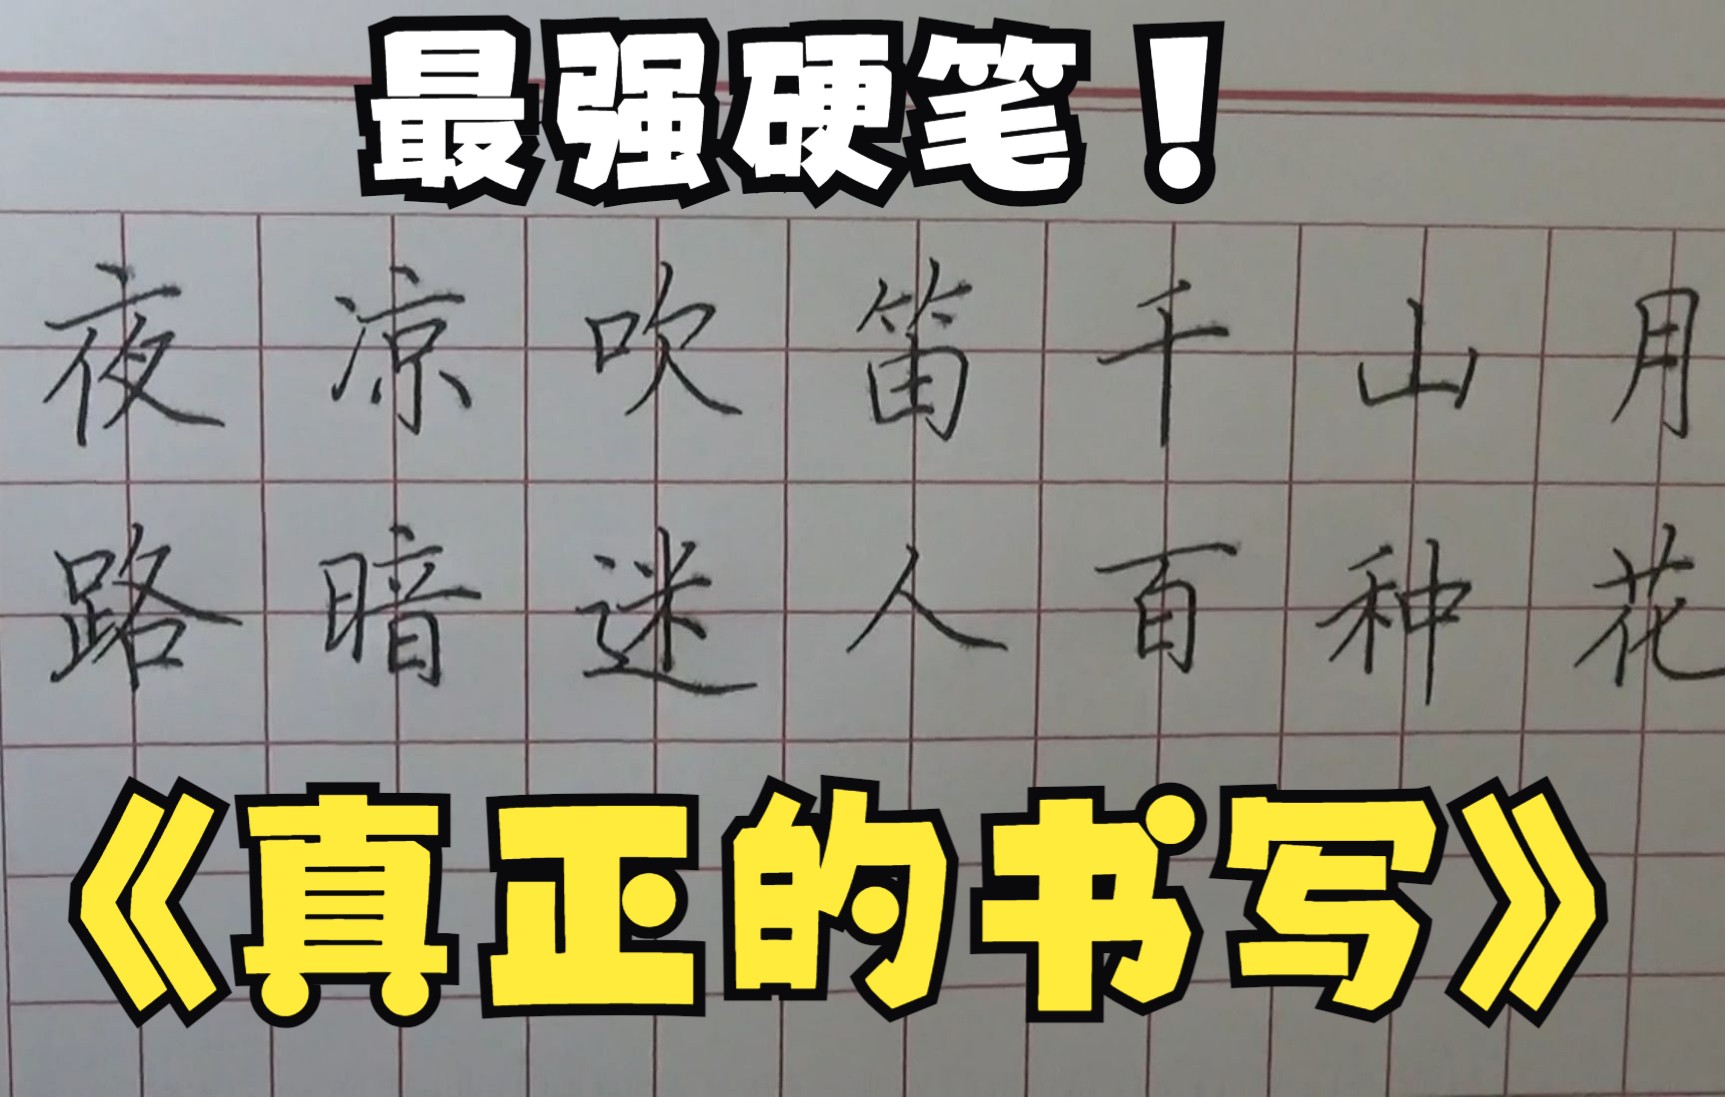 最强硬笔！
夜凉吹笛千山月
路暗迷人百种花
《真正的书写》